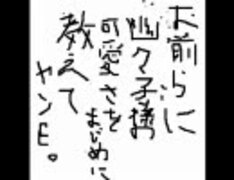 お前らに
幽々子様の
可愛さを
まじめに
教えて
ヤンE。